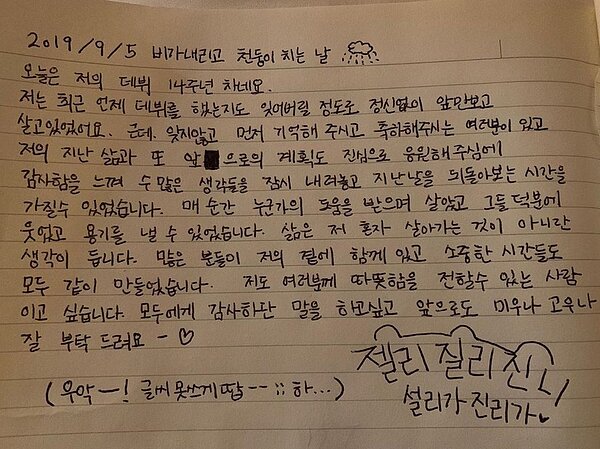 2019/9/5 비가내리고 천둥이 치는 날
오늘은 저의 데뷔 14주년 차네요.
저는 최근 언제 데뷔를 했는지도 잊어버릴 정도로 정신없이 앞만보고
살고있었어요. 근데. 잊지않고 먼저 기억해 주시고 축하해주시는 여러분이 있고
저의 지난 삶과 또 앞으로의 계획도 진심으로 응원해주심에
감사함을 느껴 수 많은 생각들을 잠시 내려놓고 지난날을 뒤돌아보는 시간을
가질수 있었습니다. 매 순간 누군가의 도움을 받으며 살았고 그들 덕분에
웃었고 용기를 낼 수 있었습니다. 삶은 저 혼자 살아가는 것이 아니란
생각이 듭니다. 많은 분들이 저의 곁에 함께 있고 소중한 시간들도
모두 같이 만들었습니다. 저도 여러분께 따뜻함을 전할수 있는 사람
이고 싶습니다. 모두에게 감사하단 말을 하고싶고 앞으로도 미우나 고우나
잘 부탁 드려요 - ♡
젤리 질리 진리
설리가 진리가♥
(우악-! 글씨 못쓰게땁--;; 하...)